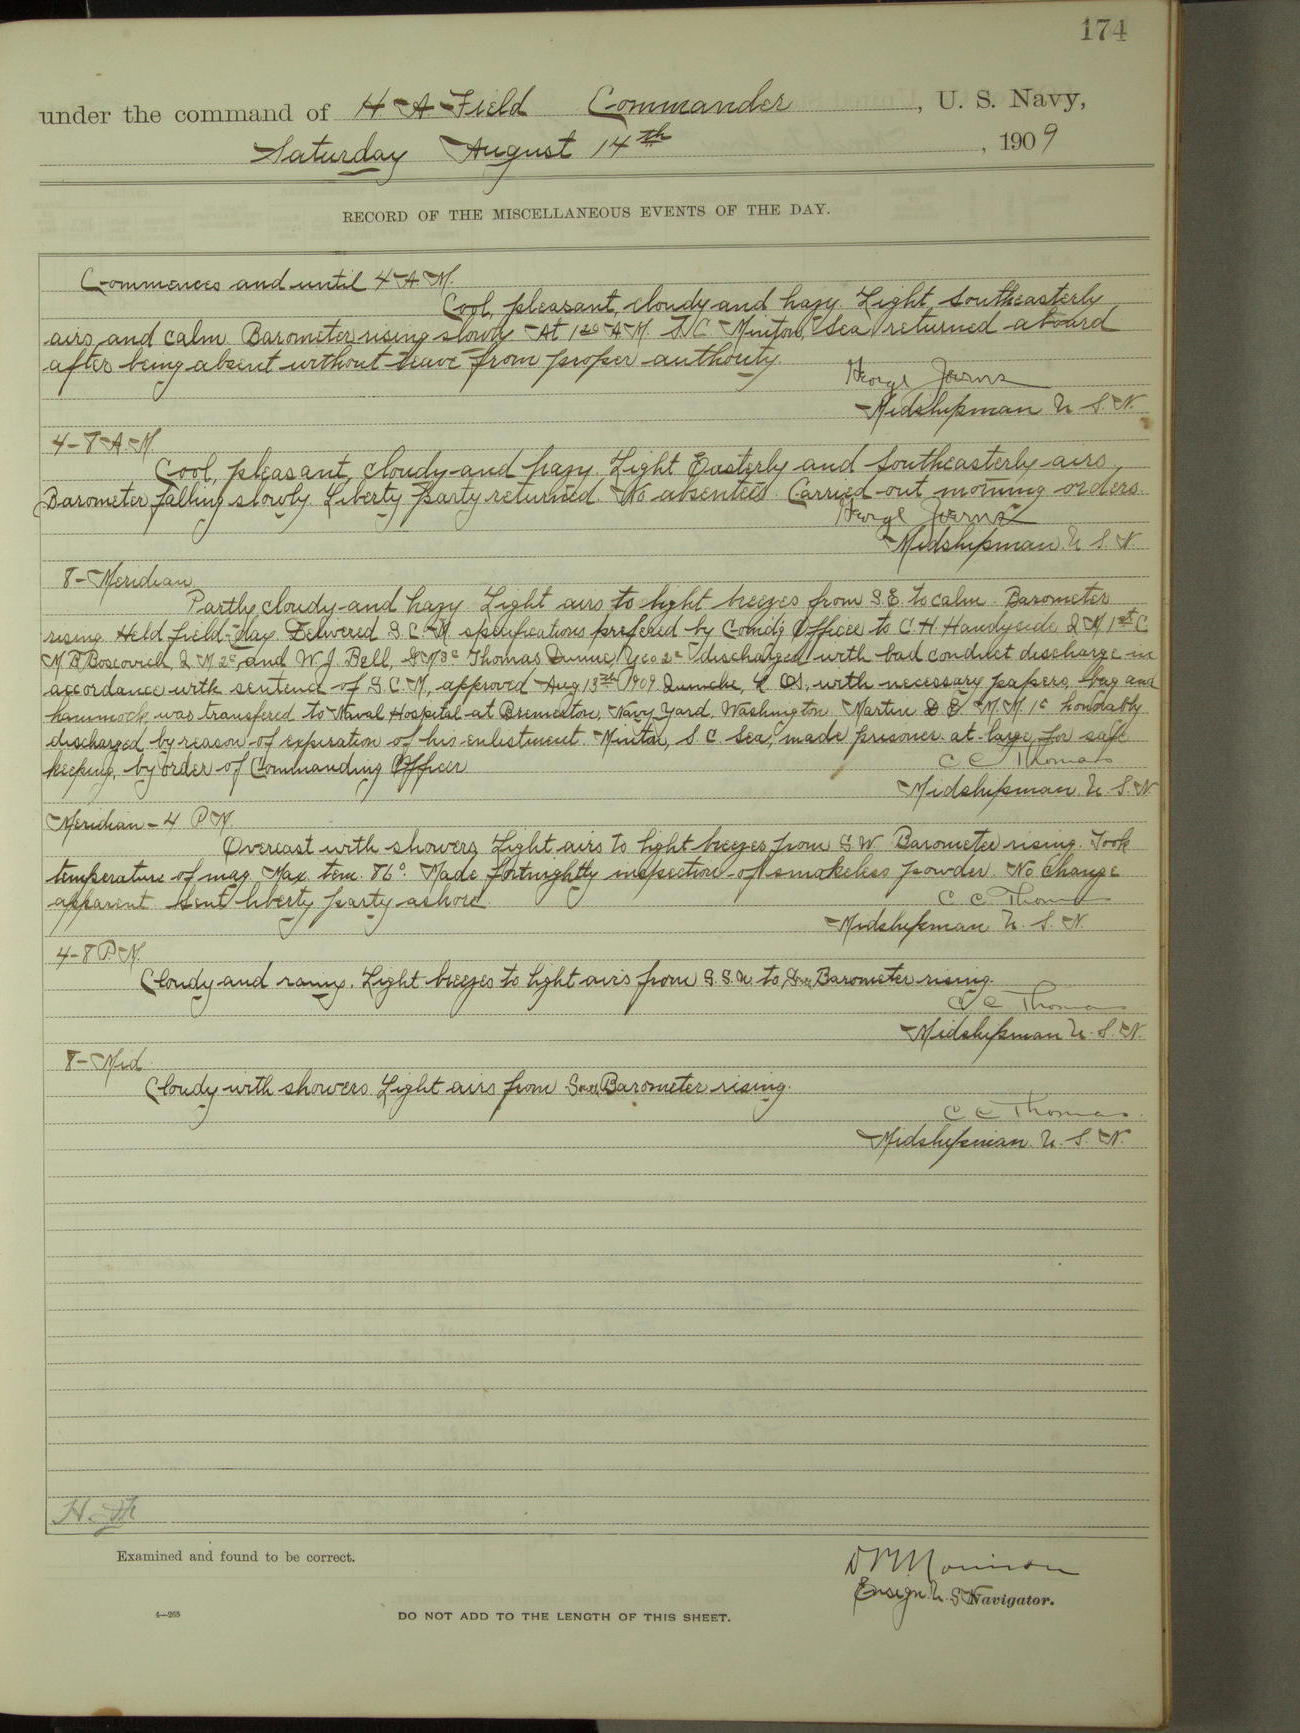 174
under the command of H. A. Field Commander, U. S. Navy,
Saturday August 14th, 1909
RECORD OF THE MISCELLANEOUS EVENTS OF THE DAY.
Commences and until 4 A. M.
Cool, pleasant, cloudy and hazy. Light Southeasterly
airs and calm. Barometer rising slowly. At 1 A. M. S.C. Minton, Sea returned aboard
after being absent without leave from proper authority.
George
Midshipman U. S. N.
4-8 A. M.
Cool, pleasant, cloudy and hazy. Light Easterly and Southeasterly airs,
Barometer falling slowly. Liberty party returned. No absentees. Carried out morning orders.
George
Midshipman U. S. N.
8-Meridian.
Partly cloudy and hazy. Light airs to light breezes from S.E. to calm. Barometer
rising. Held field-day. Delivered S. C. M. specifications prefered by Comd'g Officer to C. H. Handyside Q M 1st C
M. B. Boscovich, Q. M. 2c, and W. J. Bell, G M 3c Thomas Dunne, Yeo 2c discharged with bad conduct discharge in
accordance with sentence of S. C. M., approved Aug 13th 1909. with necessary papers, bag and
hammock, was transfered to Naval Hospital at Bremerton, Navy Yard, Washington. Martin D E M. M. 1c honorably
discharged by reason of expiration of his enlistment. Minton, S C Sea, made prisoner at large, for safe
keeping, by order of Commanding Officer.
C C Thomas
Midshipman U. S. N.
Meridian-4 P. M.
Overcast with showers. Light airs to light breezes from S W. Barometer rising. Took
temperature of mag. Max. tem. 86°. Made fortnightly inspection of smokeless powder. No change
apparent. Sent liberty party ashore.
C C Thomas
Midshipman U. S. N.
4-8 P. M.
Cloudy and rainy. Light breezes to light airs from S.S.W. to Barometer rising.
C C Thomas
Midshipman U. S. N.
8-Mid.
Cloudy with showers. Light airs from Barometer rising.
C C Thomas
Midshipman U. S. N.
Examined and found to be correct.
Ensign U. S. N. Navigator.
4—265
DO NOT ADD TO THE LENGTH OF THIS SHEET.